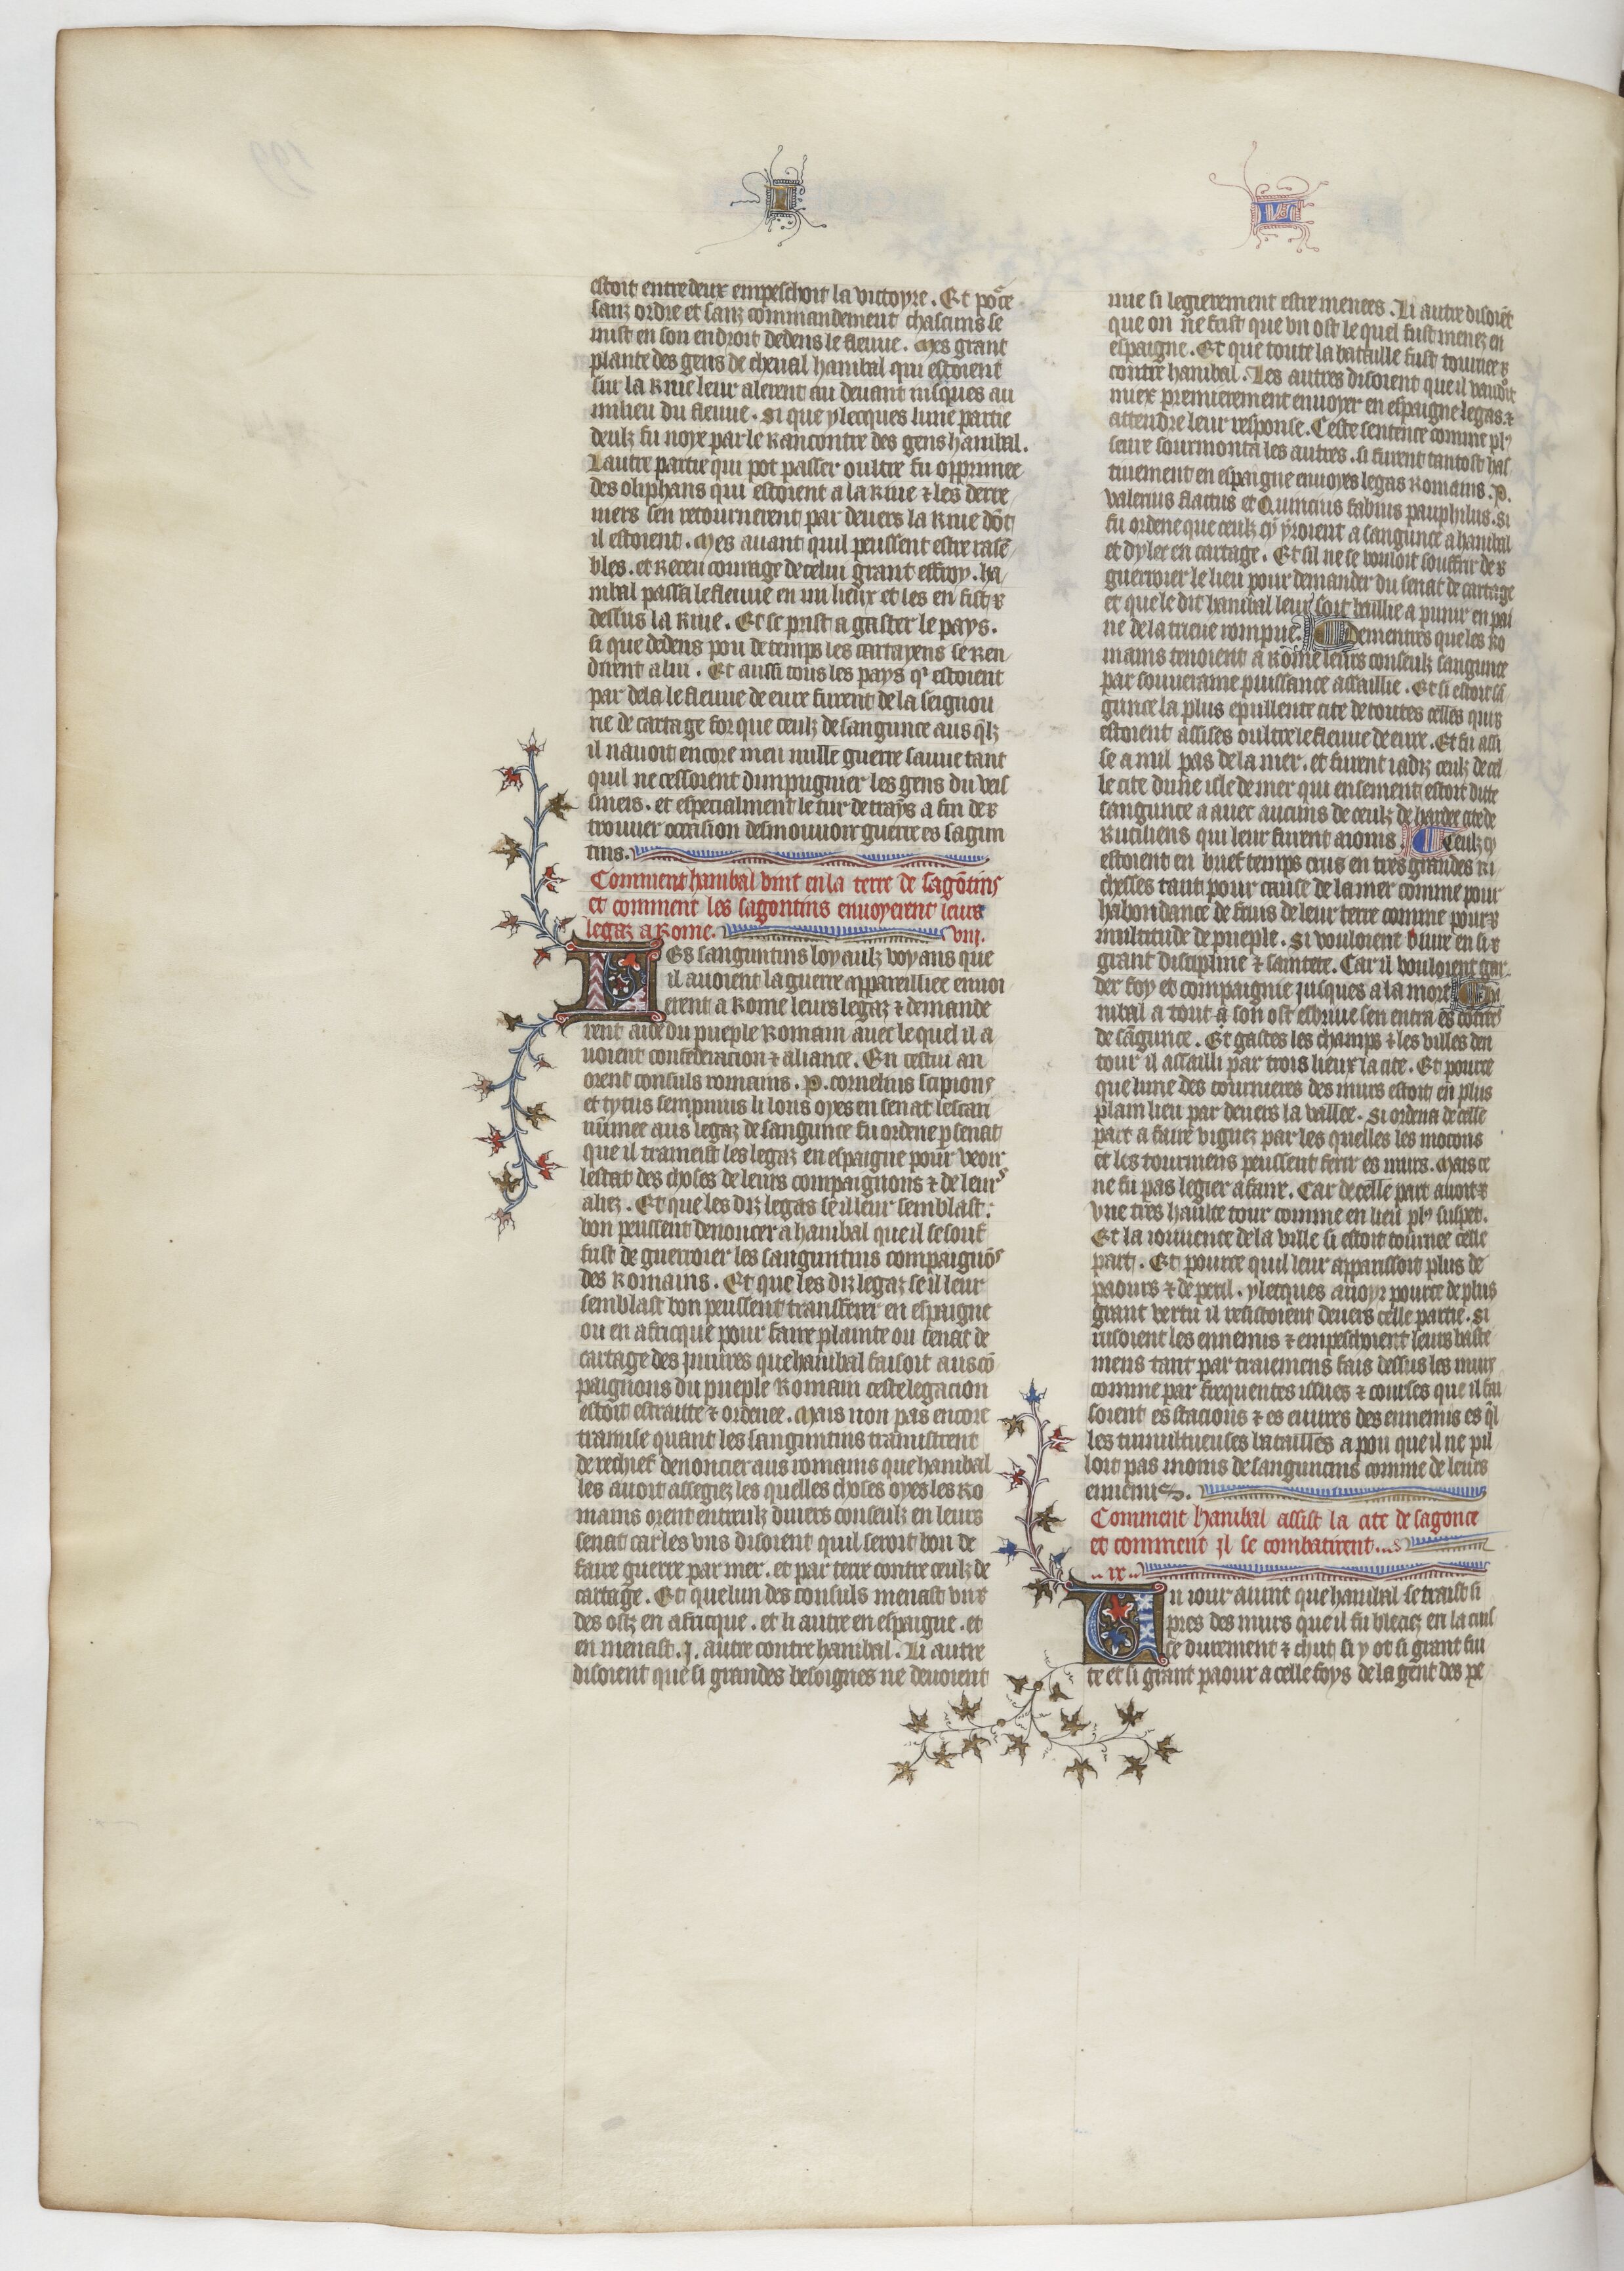 I
VS
estoit entredeux empeschoit la victoyre. Et poꝛce
sanz ordre et sanz commandement chascuns se
mist en son endroit dedens le fleuue. Mes grant
plante des gens de cheual hanibal qui estoient
sur la Riue leur alerent au deuant iusques au
milieu du fleuue. Si que ylecques lune partie
deulz fu noye par le Rancontre des gens hanibal.
Lautre partie qui pot passer oultre fu opprimee
des oliphans qui estoient a la Riue ⁊ les derre
niers sen retournerent par deuers la Riue dōt
il estoient. Mes auant quil peussent estre rasē
bles. et Receu courage de celui grant effroy. ha
nibal passa le fleuue en un lieux et les en fist
dessus la Riue. Et se prist a gaster le pays.
si que dedens pou de temps les cartayens se Ren
dirent a lui. Et aussi tous les pays qⁱ estoient
par dela le fleuue de eure furent de la seignou
rie de cartage for que ceulz de sangunce aus qlz
il nauoit encore meu nulle guerre sauue tant
quil ne cessoient dimpugnier les gens du veis
sineis. et especialment le tur de trays a fin de
trouuer occasion desmouuoir guerre es sagun
tins.
Comment hanibal vint en la terre de sagōtins
et comment les sagontins enuoyerent leurs
legaz a Rome. viij.
LEs sanguntins loyaulz voyans que
il auoient la guerre appareilliee enuoi
erent a Rome leurs legaz ⁊ demande
rent aide du pueple Romain auec le quel il a
uoient confederacion ⁊ aliance. En cestui an
orent consuls romains. P. cornelius scipions
et tytus sempnius li lons oyes en senat lescan
nūmee aus legaz de sangunce fu ordene p senat
que il trameist les legaz en espaigne pour veoir
lestat des choses de leurs compaignons ⁊ de leurˢ
aliez. Et que les diz legas se il leur semblast
bon peussent denoncer a hanibal que il se souf
frist de guerroier les sanguntins compaignōˢ
des Romains. Et que les diz legaz se il leur
semblast bon peussent transferer en espaigne
ou en africque pour faire plainte ou senat de
cartage des iniures que hanibal faisoit aus cō
paignons du pueple Romain ceste legacion
estoit estraitte ⁊ ordenee. Mais non pas encore
tramise quant les sanguntins tramistrent
de rechief denoncier aus romains que hanibal
les auoit assegiez les quelles choses oyes les Ro
mains orent entreulz diuers conseulz en leurs
senat car les vns disoient quil seroit bon de
faire guerre par mer. et par terre contre ceulz de
cartage. Et que lun des consuls menast vns
des ostz en africque. et li autre en espaigne. et
en menast .j. autre contre hanibal. Li autre
disoient que si grandes besoignes ne deuoient
mie si legierement estre menees. Li autre disoiēt
que on ne feist que vn ost le quel fust menez en
espaigne. Et que toute la bataille fust tournee
contre hanibal. Les autres disoient que il vaudᵒit
miex premierement enuoyer en espaigne legas ⁊
attendre leur response. Ceste sentence comme plꝰ
seure sourmonta les autres. si furent tantost has
tiuement en espaigne enuoyes legas Romains. P.
valerius flactus et Quincius fabius pauphilus. Si
fu ordene que ceulz cy yroient a sangunce a hanibal
et dylec en cartage. Et sil ne se vouloit souffrir de
guerroier le lieu pour demander du senat de cartage
et que le dit hanibal leur soit baillie a punir en pai
ne de la trieue rompue. Dementres que les Ro
mains tenoient a Rome leurs conseulz sangunce
par souueraine puissance assaillie. Et si estoit sā
gunce la plus epullente cite de toutes celles quis
estoient assises oultre le fleuue de eure. Et fu assi
se a mil pas de la mer. et furent iadiz ceulz de cel
le cite dune isle de mer qui ensement estoit ditte
sangunce a auec aucuns de ceulz de hardee cite de
Rutiliens qui leur furent aioins. Ceulz cy
estoient en brief temps crus en tres grandes Ri
chesses tant pour cause de la mer comme pour
habondance de fruis de leur terre comme pour
multitude de pueple. Si vouloient viure en si
grant discipline ⁊ saintete. Car il vouloient gar
der foy et compaignie jusques a la mort. Ha
nibal a tout a son ost esbruie sen entra es contrᵉˢ
de sāgunce. Et gastes les champs ⁊ les villes den
tour il assailli par trois lieux la cite. Et pource
que lune des cournieres des murs estoit en plus
plain lieu par deuers la vallee. Si ordena de celle
part a faire viguez par les quelles les motons
et les tourmens peussent ferir es murs. Mais ce
ne fu pas legier a faire. Car de celle part auoit
vne tres haulte tour comme en lieu plꝰ suspet.
Et la iouuence de la ville si estoit tournee celle
part. Et pource quil leur apparissoit plus de
paours ⁊ de peril. ylecques auoyr pource de plus
grant vertu il resistoient deuers celle partie. Si
iusoient les ennemis ⁊ empeschoient leurs baste
mens tant par traiemens fais dessus les murs
comme par frequentes issues ⁊ courses que il fai
soient es stacions ⁊ es euures des ennemis es ql
les tumultueuses batailles a pou que il ne pil
loit pas moins de sanguncins comme de leurs
ennemis.
Comment hanibal assist la cite de sagonce
et comment jl se combatirent...
..ix..
Un iour auint que hanibal se traist si
pres des murs que il fu bleciez en la cuis
se durement ⁊ chut si y ot si grant fui
te et si grant paour a celle foys de la gent des pe